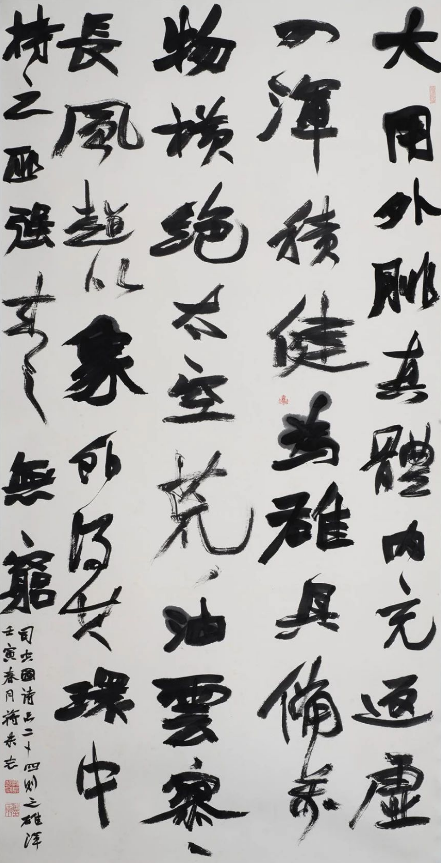 大用外腓真體內充返虛
入渾積健為雄具備萬
物橫絕太空荒〻油雲寥〻
長風超以象外得其環中
持之匪强来之無窮
司空圖詩品二十四則之雄渾
壬寅春月